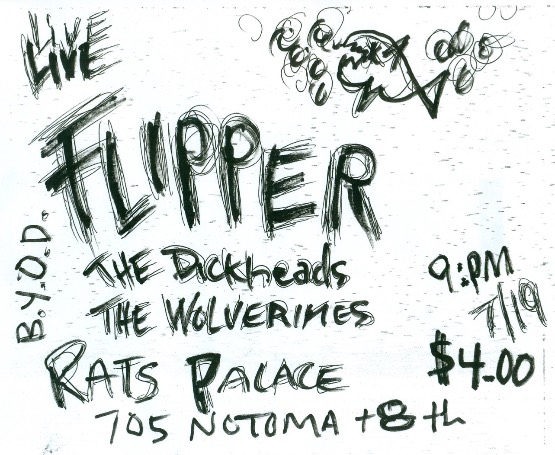 LIVE
FLIPPER
B.Y.O.D.
THE Dickheads
THE WOLVERINES
9:PM
7/19
RATS PALACE
$4.00
705 NOTOMA + 8th